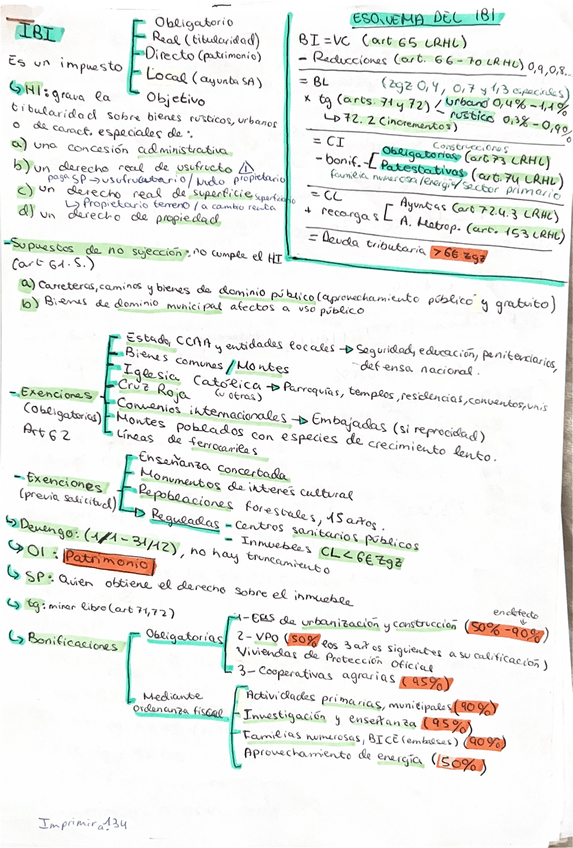 IBI
Es un impuesto
Obligatorio
Real (titularidad)
Directo (patrimonio)
Local (ayuntSA)
Objetivo
↳ HI: grava la
titularidad sobre bienes rústicos, urbanos
o de caract. especiales de:
a) una concesión administrativa
b) un derecho real de usufructo ⚠
paga SP → usufructuario / nudo propietario
c) un derecho real de superficie superficiario
↳ Propietario terreno / a cambio renta
d) un derecho de propiedad
ESQUEMA DEL IBI
BI = VC (art 65 LRHL)
- Reducciones (art. 66-70 LRHL) 0,9, 0,8...
= BL (zgz 0,4, 0,7 y 1,3 especiales)
x tg (arts. 71 y 72) < urbano 0,4% - 1,1%
rústica 0,3% - 0,9%
↳ 72.2 (incrementos)
= CI Construcciones
- bonif. Obligatorias (art 73 LRHL)
Potestativas (art 74 LRHL)
familia numerosa/energía/sector primario
= CL
+ recargas Ayuntas (art 72.4.3 LRHL)
A. Metrop. (art. 153 LRHL)
= Deuda tributaria >6€ zgz
- Supuestos de no sujección: no cumple el HI
(art 61.5.)
a) Carreteras, caminos y bienes de dominio público (aprovechamiento público y gratuito)
b) Bienes de dominio municipal afectos a uso público
- Exenciones
(obligatorias)
Art 62
Estado, CCAA y entidades locales → Seguridad, educación, penitenciarios,
defensa nacional.
Bienes comunes / Montes
Iglesia Católica → Parroquias, templos, residencias, conventos, unis
Cruz Roja (u otras)
Convenios internacionales → Embajadas (si reprocidad)
Montes poblados con especies de crecimiento lento.
Líneas de ferrocarriles
- Exenciones
(previa solicitud)
Enseñanza concertada
Monumentos de interés cultural
Repoblaciones forestales, 15 años.
Reguladas - Centros sanitarios públicos
- Inmuebles CL < 6€ zgz
↳ Devengo: (1/1 - 31/12), no hay truncamiento
↳ OI: Patrimonio
↳ SP: Quien obtiene el derecho sobre el inmueble
↳ tg: mirar libro (art 71, 72)
↳ Bonificaciones
Obligatorias
1- EBS de urbanización y construcción (50% - 90%) en defecto
2- VPO (50% los 3 años siguientes a su calificación)
Viviendas de Protección Oficial
3- Cooperativas agrarias (95%)
Mediante
ordenanza fiscal
Actividades primarias, municipales (90%)
Investigación y enseñanza (95%)
Familias numerosas, BICE (embalses) (90%)
Aprovechamiento de energía (50%)
Imprimir a 134